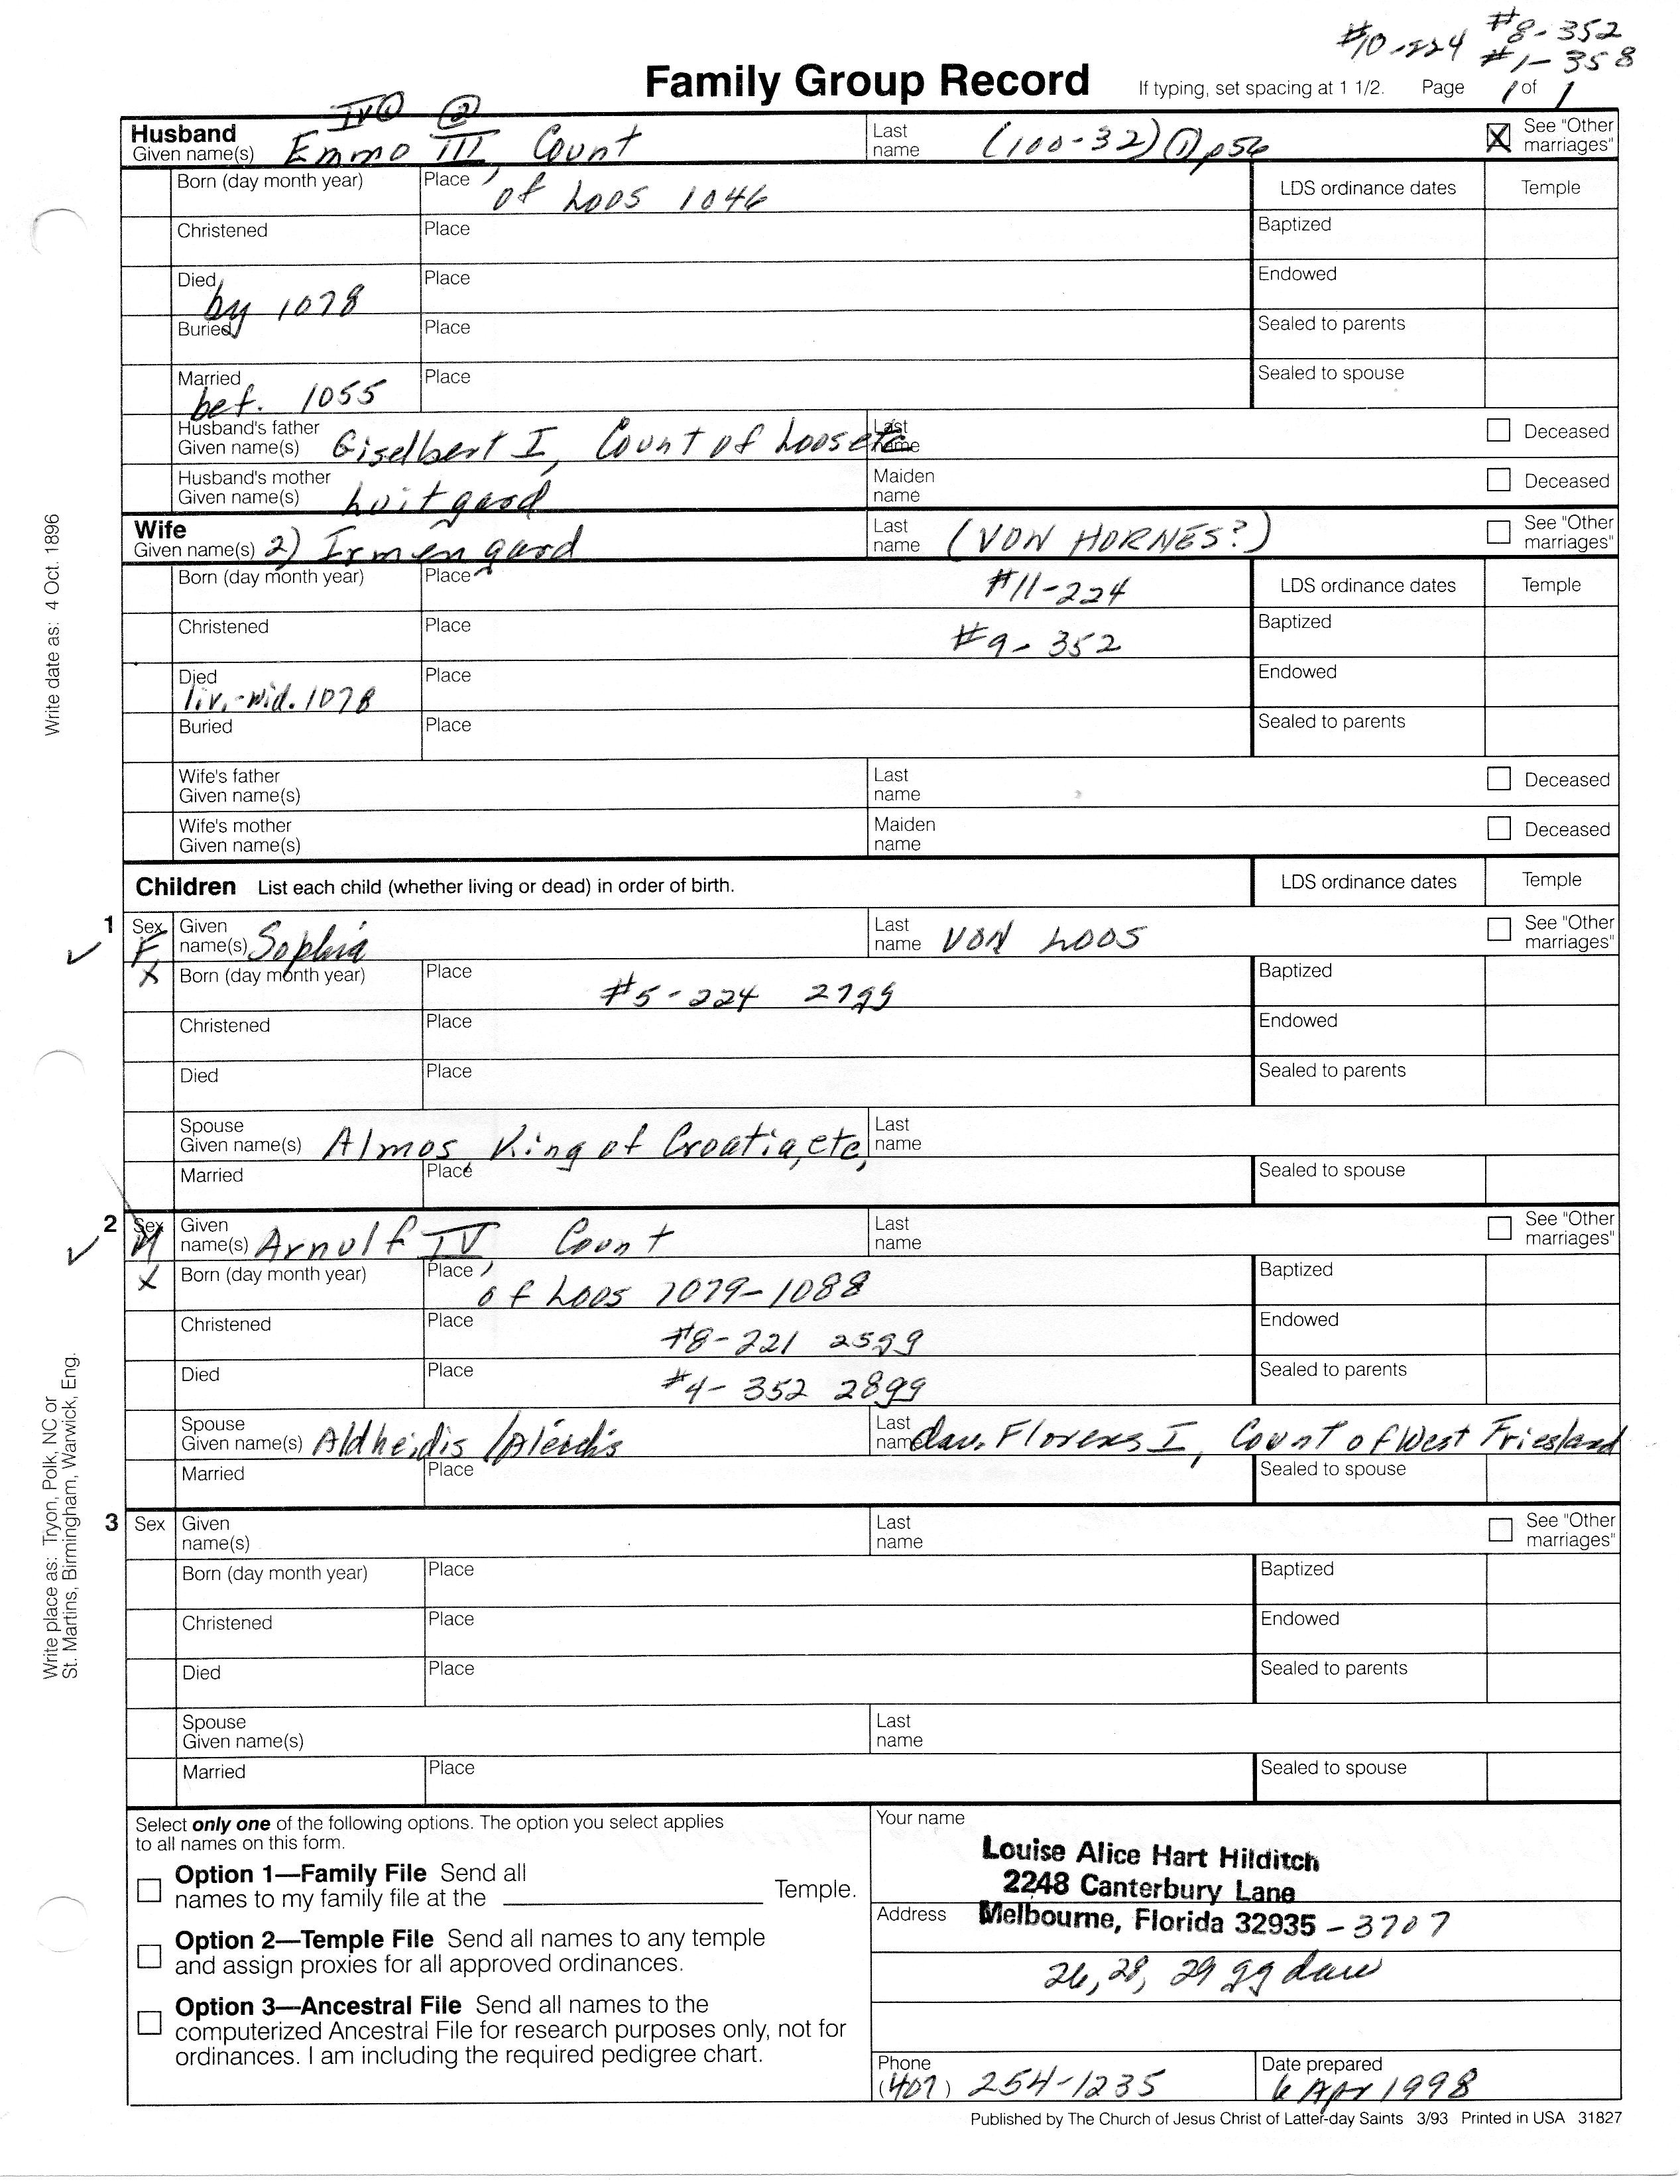 #10-224 #8-352
#1-358
Family Group Record If typing, set spacing at 1 1/2. Page 1 of 1
IV ① ②
Husband
Given name(s) Emmo III, Count Last name (100-32) ① p54 X See "Other marriages"
Born (day month year) Place of Loos 1046 LDS ordinance dates Temple
Christened Place Baptized
Died by 1078 Place Endowed
Buried Place Sealed to parents
Married bef. 1055 Place Sealed to spouse
Husband's father Given name(s) Giselbert I, Count of Loos etc Last name Deceased
Husband's mother Given name(s) Luitgard Maiden name Deceased
Wife
Given name(s) 2) Irmengard Last name (VON HORNES?) See "Other marriages"
Born (day month year) Place #11-224 LDS ordinance dates Temple
Christened Place #9-352 Baptized
Died liv.-wid. 1078 Place Endowed
Buried Place Sealed to parents
Wife's father Given name(s) Last name Deceased
Wife's mother Given name(s) Maiden name Deceased
Children List each child (whether living or dead) in order of birth. LDS ordinance dates Temple
1 Sex F Given name(s) Sophia Last name VON LOOS See "Other marriages"
X Born (day month year) Place #5-224 27gg Baptized
Christened Place Endowed
Died Place Sealed to parents
Spouse Given name(s) Almos King of Croatia, etc, Last name
Married Place Sealed to spouse
2 Sex M Given name(s) Arnulf IV, Count Last name See "Other marriages"
X Born (day month year) Place of Loos 1079-1088 Baptized
Christened Place #8-221 25gg Endowed
Died Place #4-352 28gg Sealed to parents
Spouse Given name(s) Aldheidis /Aleidis Last name dau. Florens I, Count of West Friesland
Married Place Sealed to spouse
3 Sex Given name(s) Last name See "Other marriages"
Born (day month year) Place Baptized
Christened Place Endowed
Died Place Sealed to parents
Spouse Given name(s) Last name
Married Place Sealed to spouse
Select only one of the following options. The option you select applies
to all names on this form.
Option 1—Family File Send all
names to my family file at the Temple.
Option 2—Temple File Send all names to any temple
and assign proxies for all approved ordinances.
Option 3—Ancestral File Send all names to the
computerized Ancestral File for research purposes only, not for
ordinances. I am including the required pedigree chart.
Your name
Louise Alice Hart Hilditch
2248 Canterbury Lane
Address Melbourne, Florida 32935-3707
26, 28, 29 gg dau
Phone (407) 254-1235 Date prepared 6 Apr 1998
Published by The Church of Jesus Christ of Latter-day Saints 3/93 Printed in USA 31827
Write date as: 4 Oct. 1896
Write place as: Tryon, Polk, NC or
St. Martins, Birmingham, Warwick, Eng.